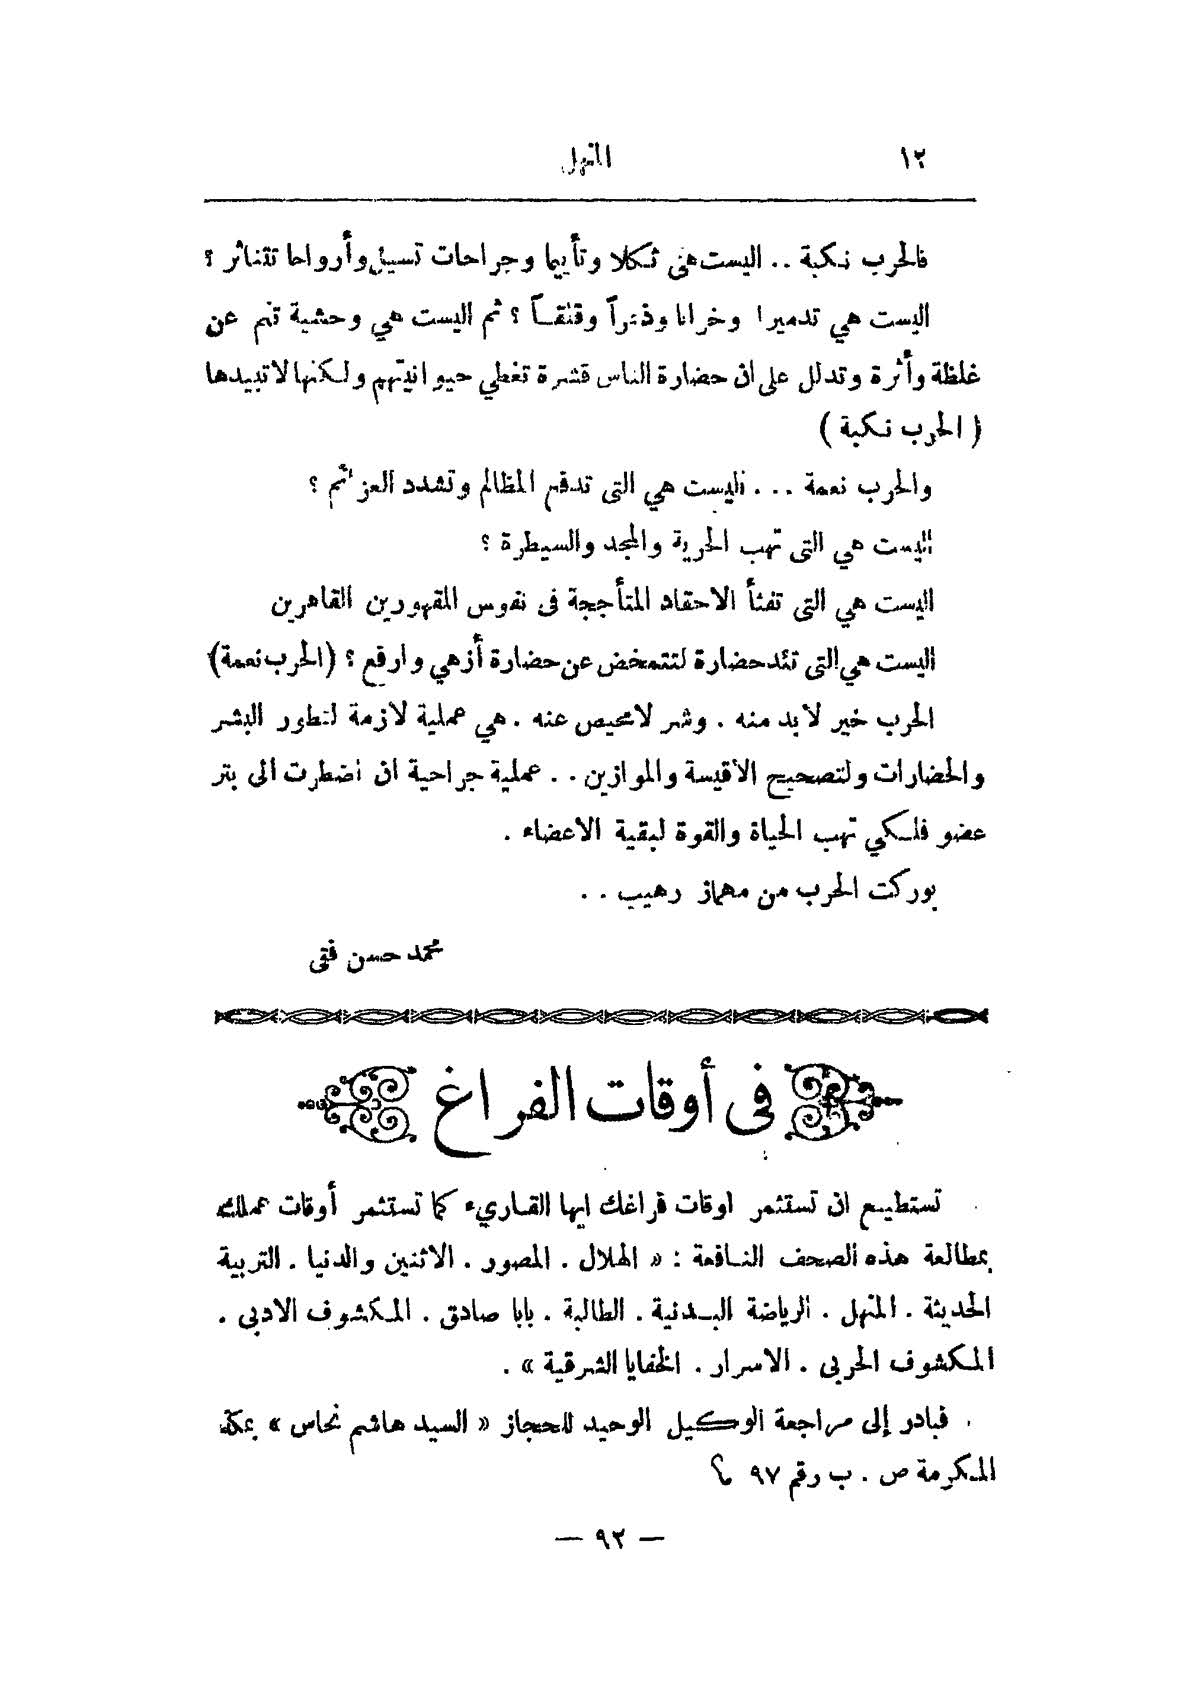 ١٢ المنهل
فالحرب نكبة .. اليست هي ثكلا وتأييما وجراحات تسيل وأرواحا تتناثر ؟
اليست هي تدميرا وخرابا وذعراً وقلقــاً ؟ ثم اليست هي وحشية تنم عن
غلظة وأثرة وتدلل على ان حضارة الناس قشرة تغطي حيوانيتهم ولكنها لا تبيدها
( الحرب نكبة )
والحرب نعمة ... فليست هي التى تدفع المظالم وتشدد العزائم ؟
اليست هي التى تهب الحرية والمجد والسيطرة ؟
اليست هي التى تفثأ الاحقاد المتأججة فى نفوس المقهورين القاهرين
اليست هي التى تئد حضارة لتتمخض عن حضارة أزهي وارفع ؟ (الحرب نعمة)
الحرب خير لابد منه . وشر لامحيص عنه . هي عملية لازمة لتطور البشر
والحضارات ولتصحيح الاقيسة والموازين .. عملية جراحية ان اضطرت الى بتر
عضو فلكي تهب الحياة والقوة لبقية الاعضاء .
بوركت الحرب من مهماز رهيب ..
محمد حسن فقى
فى أوقات الفراغ
تستطيع ان تستثمر اوقات فراغك ايها القاريء كما تستثمر أوقات عملك
بمطالعة هذه الصحف النافعة : « الهلال . المصور . الاثنين والدنيا . التربية
الحديثة . المنهل . الرياضة البدنية . الطالبة . بابا صادق . المكشوف الادبى .
المكشوف الحربى . الاسرار . الخفايا الشرقية » .
فبادر إلى مراجعة الوكيل الوحيد للحجاز « السيد هاشم نحاس » بمكة
المكرمة ص . ب رقم ٩٧
— ٩٢ —